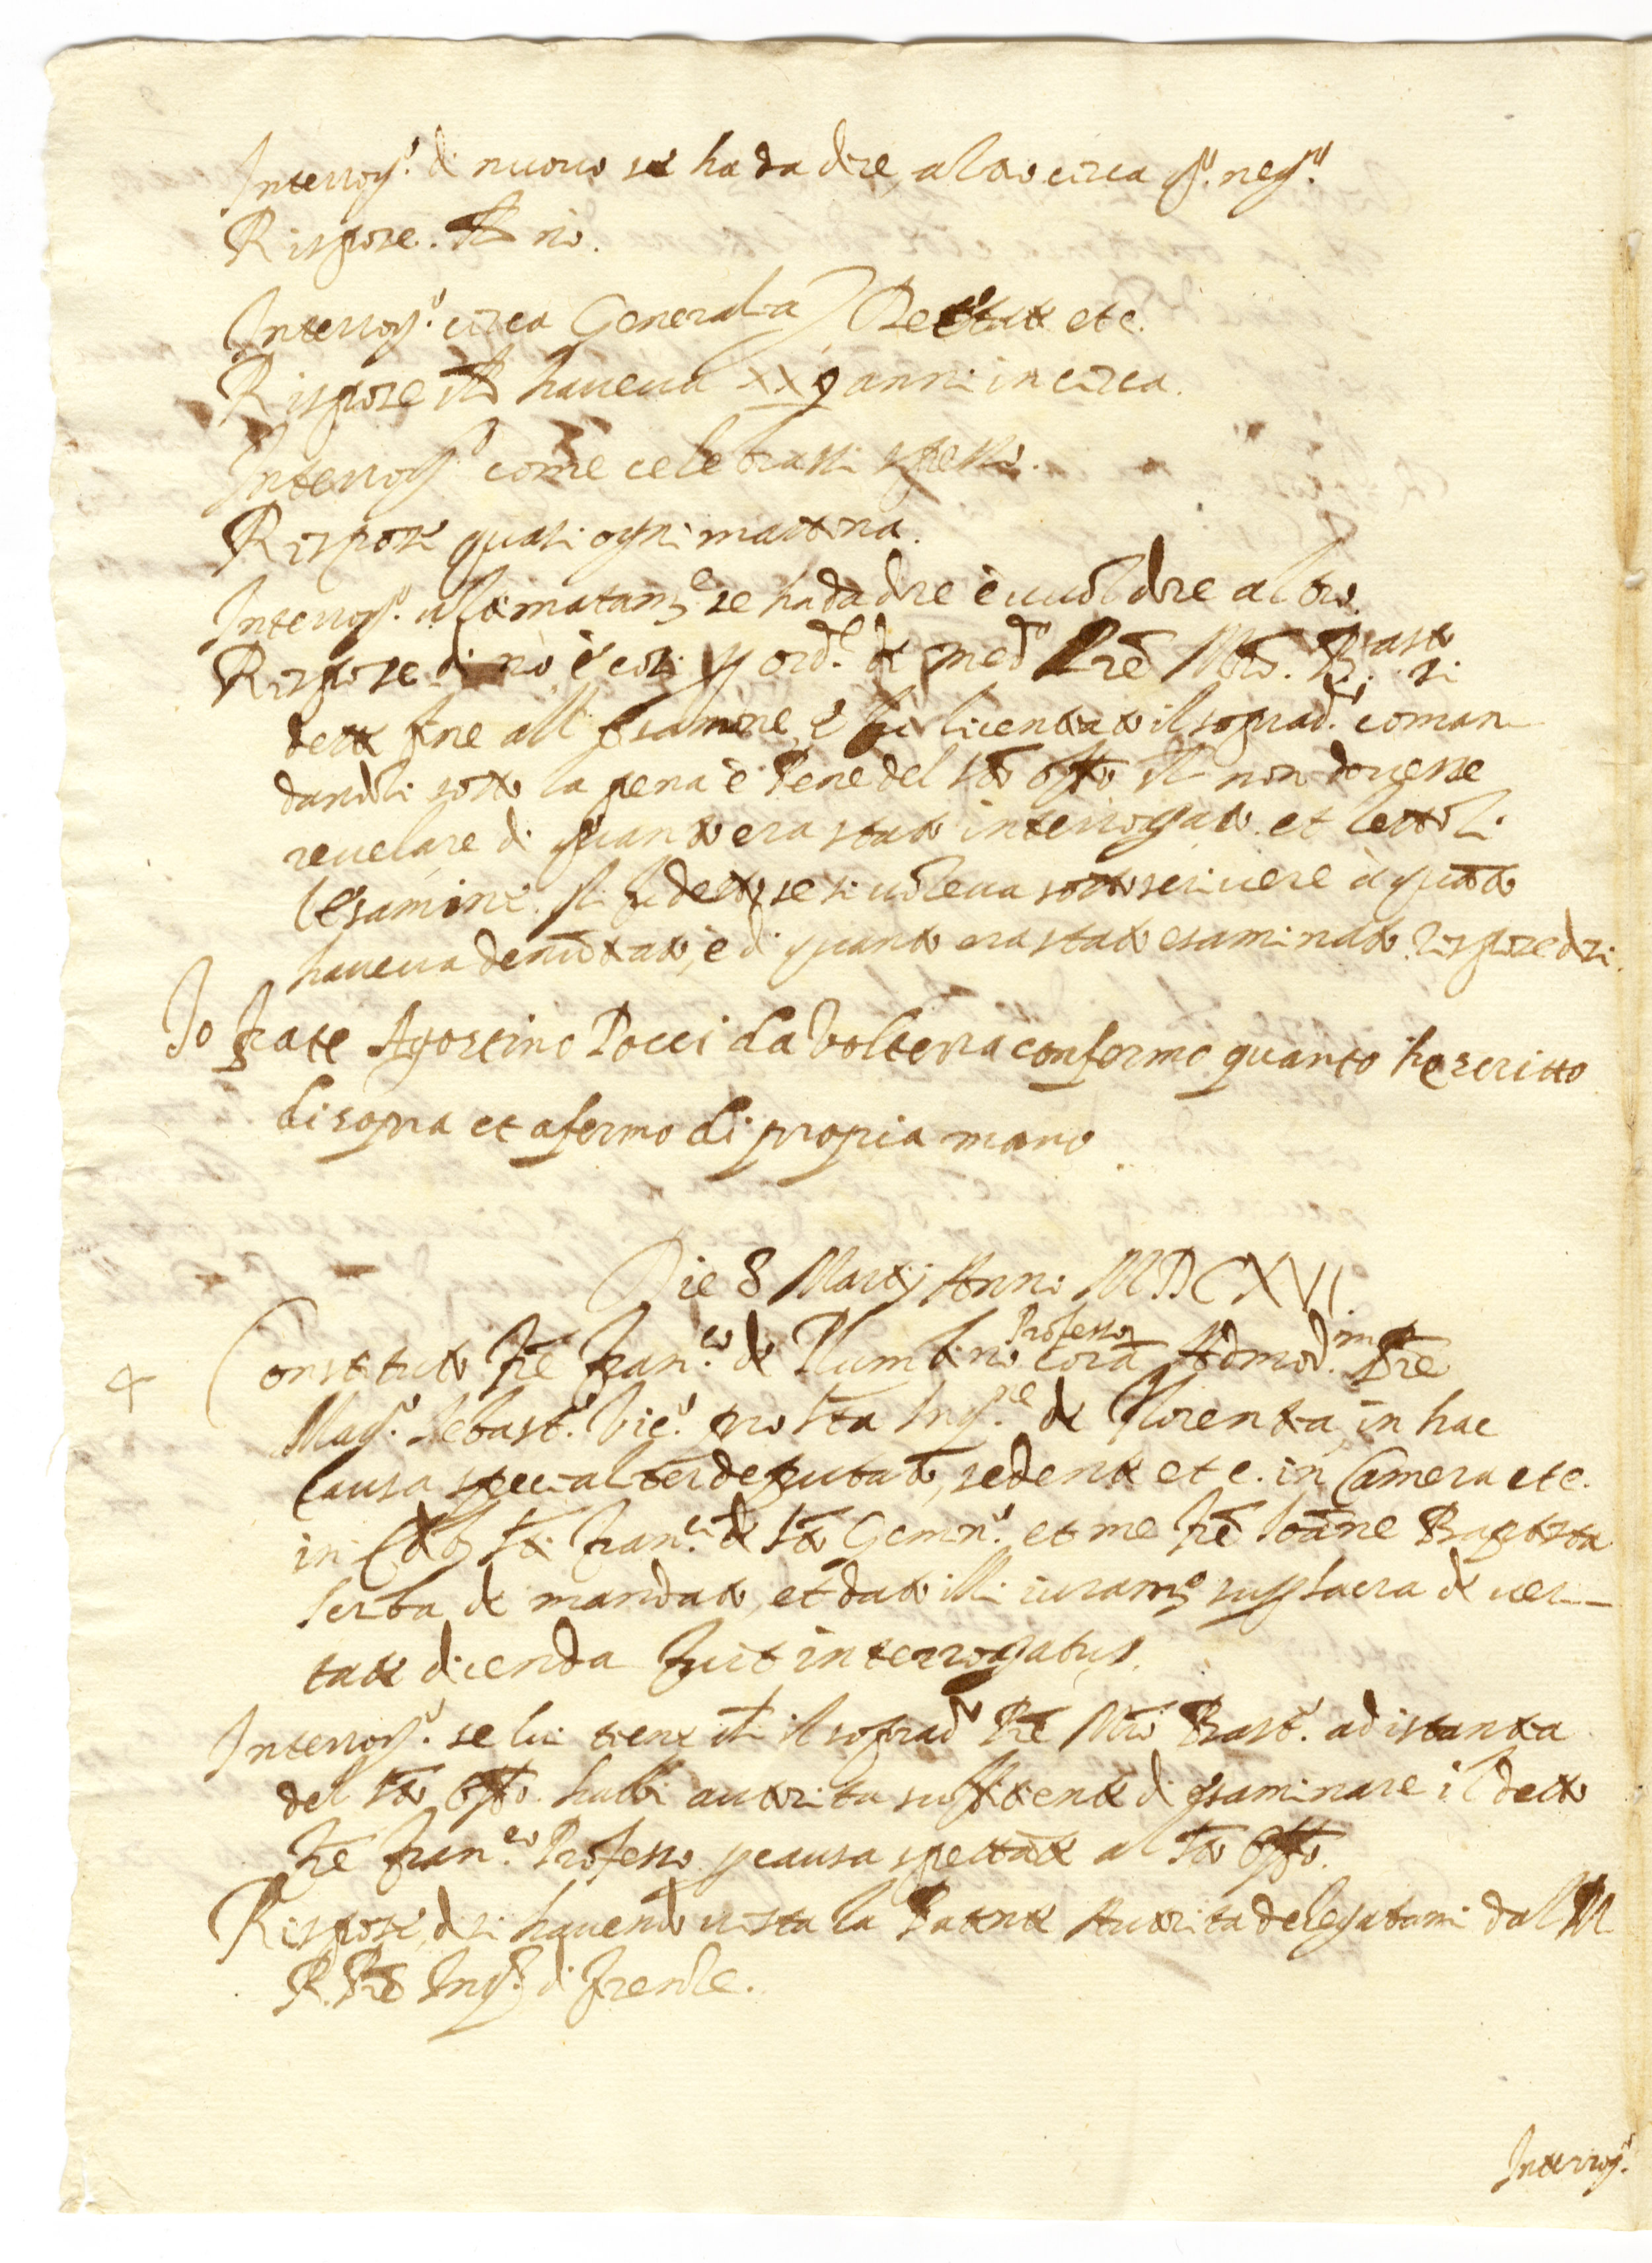 Interrog.º di nuouo se ha da dire altro circa q.º neg.º
Rispose. di nò.
Interrog.º circa Generalia, etate etc.
Rispose ch haueua XX anni in circa.
Interrog.º come celebrassi spesso.
Rispose quasi ogni mattina.
Interrog.º ultimatam.e se ha da dire è uuol dire altro.
Rispose di nò è così p ord.e de med.º Pre Mro. Bast.º si
dette fine all esamine, è fù licentiato il soprad.º coman
dandoli sotto la pena è Pene del Sto Offo ch non douesse
reuelare di quanto era stato interrogato. et lettoli
l'esamine. li fu detto se si uoleua sottoscriuere à quāto
haueua denūtiato, è di quanto era stato esaminato. rispose di si.
Io frate Agostino Pocci da Volterra confermo quanto ho scritto
di sopra et afermo di propria mano
Die 8 Martij Anni MDCXVI.
Constituto fre Fran.co de Plumbino Professo corā Admod.m Pre
Mag.º Sebast.º Vic.º pro Sta Inq.ne de Florentia, in hac
Causa specialiter deputato, sedente etc. in Camera etc.
in Sti Fran.ci de Sto Gemin.º et me fre Ioāne Baptista
Scriba de mandato, et dato illi iuram.º sup sacra de ueri–
tate dicenda fuit interrogatus.
Interrog.º se lui tiene ch il soprad.º Pre Mro Bast.º ad istantia
del Sto Offo. habbi autorita suffitiente di esaminare il detto
fre Fran.co Professo p causa spettāte al Sto Offo.
Rispose, di si hauendo uista la Patente Autorita delegatami dal M.
R. Pre Inq.re di firenze.
Interrog.º